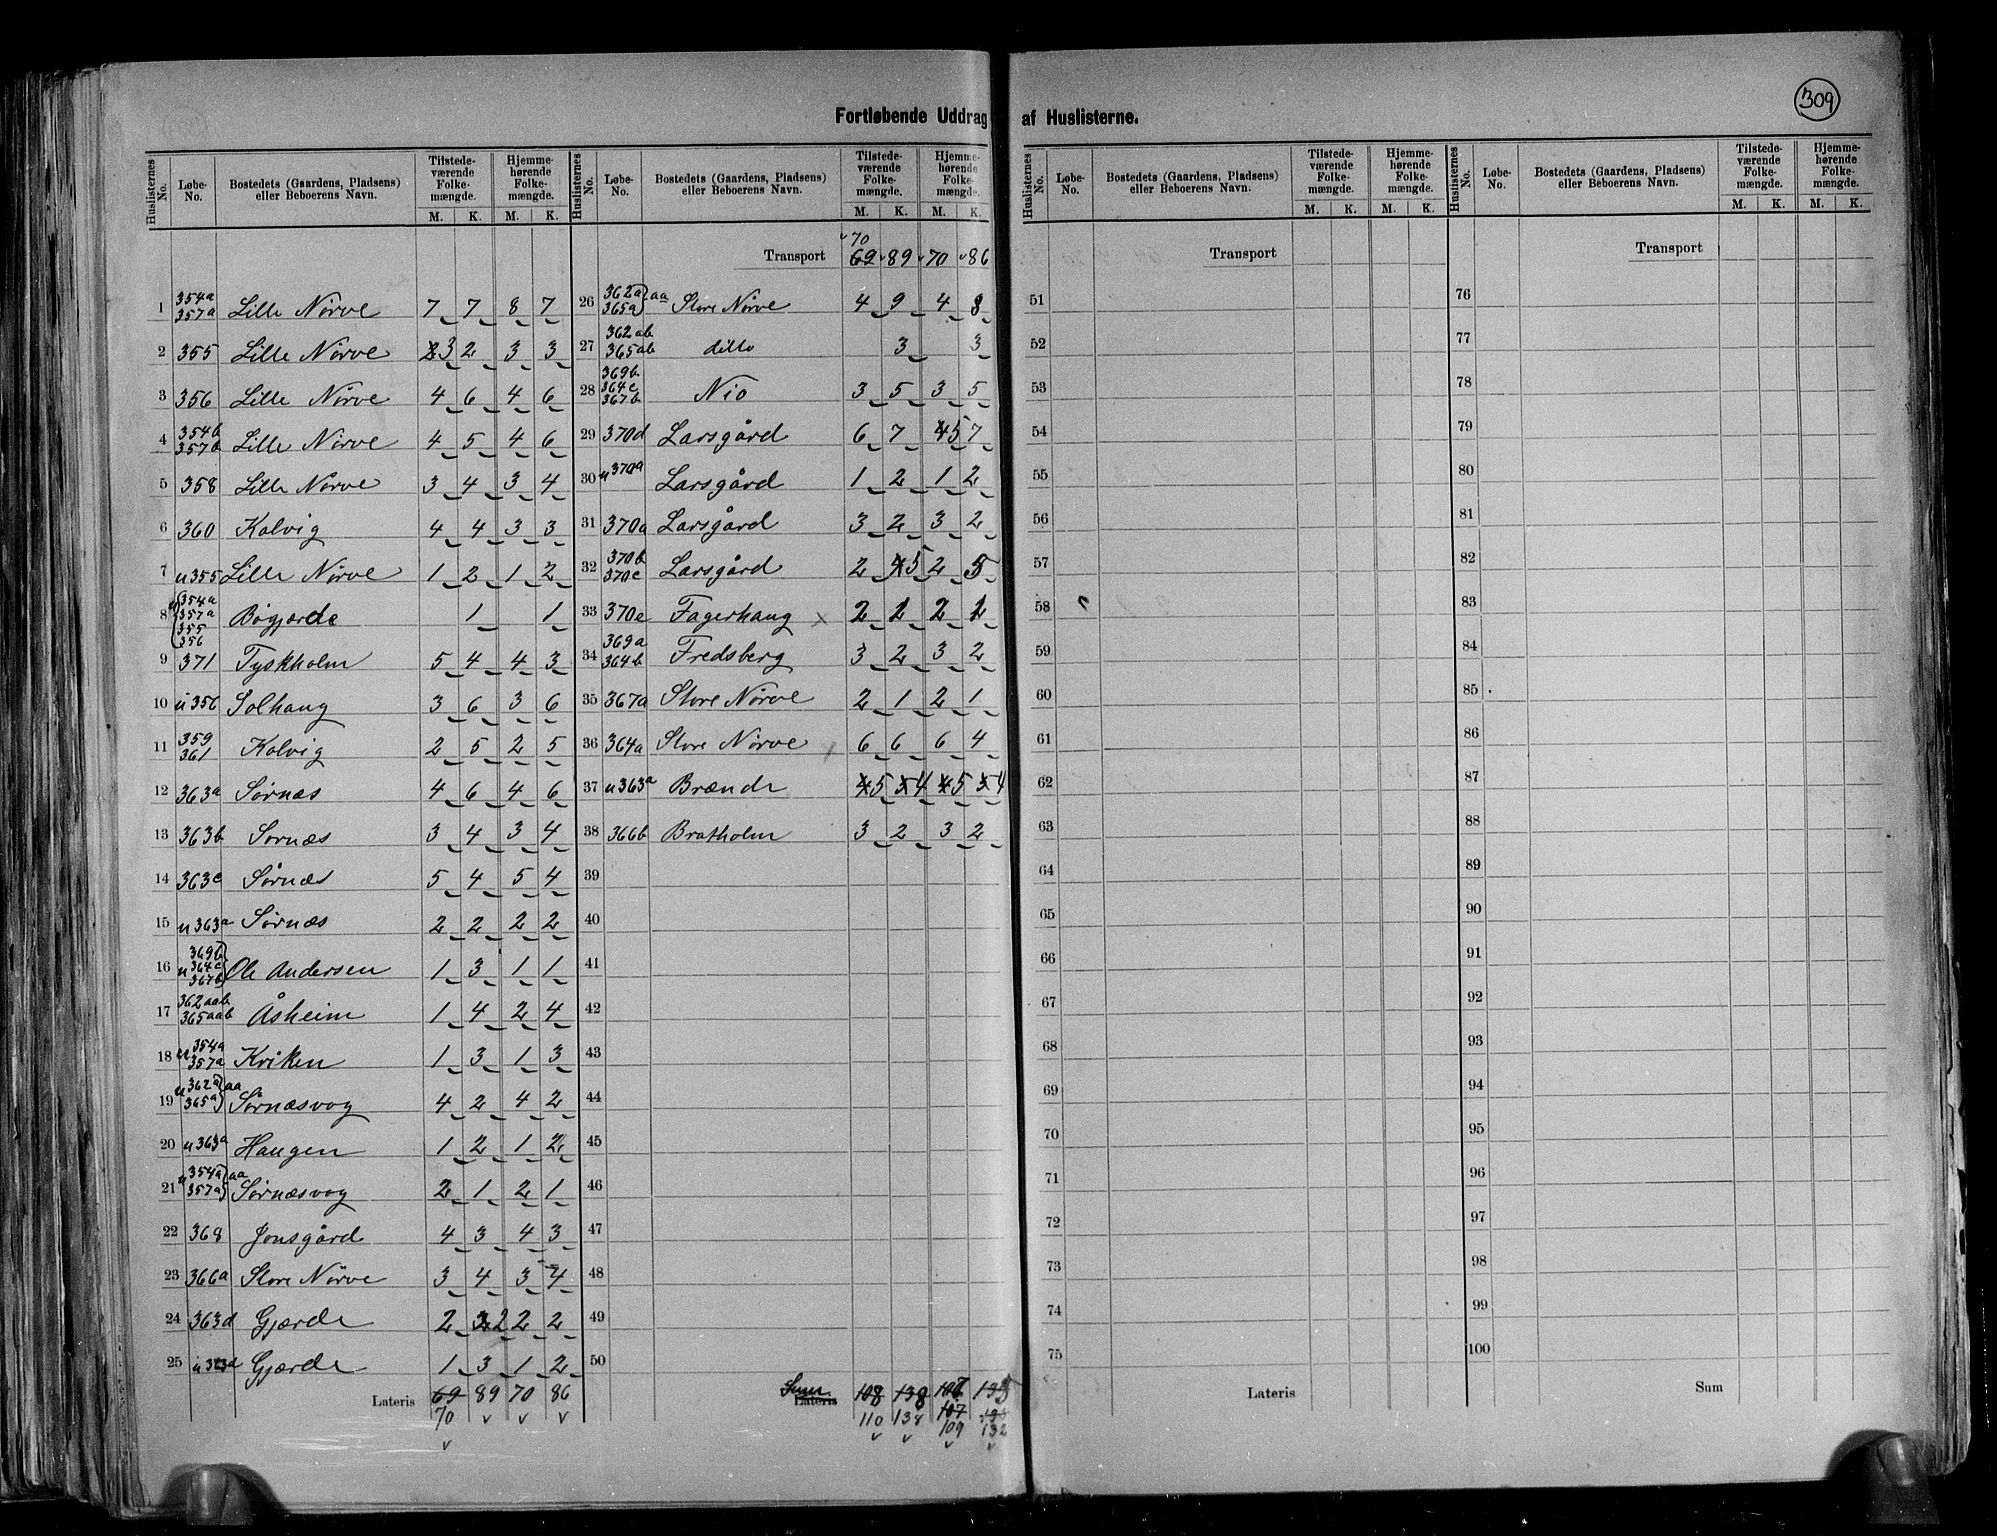 Fortløbende Uddrag af Huslisterne.
309
Huslisternes No. | Løbe-No. | Bostedets (Gaardens, Pladsens) eller Beboerens Navn. | Tilstedeværende Folkemængde. M. K. | Hjemmehørende Folkemængde. M. K.
1 354a 357a Lille Nørve 7 7 8 7
2 355 Lille Nørve 3 2 3 3
3 356 Lille Nørve 4 6 4 6
4 354b 357b Lille Nørve 4 5 4 6
5 358 Lille Nørve 3 4 3 4
6 360 Kalvig 4 4 3 3
7 u355 Lille Nørve 1 2 1 2
8 u 354a 357a 355 356 Bøgjærde 1 1
9 371 Tyskholm 5 4 4 3
10 u356 Solhaug 3 6 3 6
11 359 361 Kalvig 2 5 2 5
12 363a Sørnæs 4 6 4 6
13 363b Sørnæs 3 4 3 4
14 363c Sørnæs 5 4 5 4
15 u363a Sørnæs 2 2 2 2
16 u 369b 364c 367b Ole Andersen 1 3 1 1
17 362aab 365aab Åsheim 1 4 2 4
18 u 354a 357a Kriken 1 3 1 3
19 u 362a 365a aa Sørnæsvog 4 2 4 2
20 u363a Haugen 1 2 1 2
21 u 354a 357a aa Sørnæsvog 2 1 2 1
22 368 Jonsgård 4 3 4 3
23 366a Store Nørve 3 4 3 4
24 363d Gjærde 2 2 2 2
25 u363d Gjærde 1 3 1 2
Lateris 69 89 70 86
70
Huslisternes No. | Løbe-No. | Bostedets (Gaardens, Pladsens) eller Beboerens Navn. | Tilstedeværende Folkemængde. M. K. | Hjemmehørende Folkemængde. M. K.
70
Transport 69 89 70 86
26 362a 365a aa Store Nørve 4 9 4 8
27 362ab 365ab ditto 3 3
28 369b 364c 367b Nio 3 5 3 5
29 370d Larsgård 6 7 4 5 7
30 u370a Larsgård 1 2 1 2
31 370a Larsgård 3 2 3 2
32 370b 370c Larsgård 2 4 5 2 5
33 370e Fagerhaug x 2 1 2 1
34 369a 364b Fredsberg 3 2 3 2
35 367a Store Nørve 2 1 2 1
36 364a Store Nørve 6 6 6 4
37 u363a Brænde 4 5 4 4 5 4
38 366b Bratholm 3 2 3 2
39
40
41
42
43
44
45
46
47
48
49
50
Sum Lateris 108 138 135
110 138 107
109 132
Huslisternes No. | Løbe-No. | Bostedets (Gaardens, Pladsens) eller Beboerens Navn. | Tilstedeværende Folkemængde. M. K. | Hjemmehørende Folkemængde. M. K.
Transport
51
52
53
54
55
56
57
58
59
60
61
62
63
64
65
66
67
68
69
70
71
72
73
74
75
Lateris
Huslisternes No. | Løbe-No. | Bostedets (Gaardens, Pladsens) eller Beboerens Navn. | Tilstedeværende Folkemængde. M. K. | Hjemmehørende Folkemængde. M. K.
Transport
76
77
78
79
80
81
82
83
84
85
86
87
88
89
90
91
92
93
94
95
96
97
98
99
100
Sum